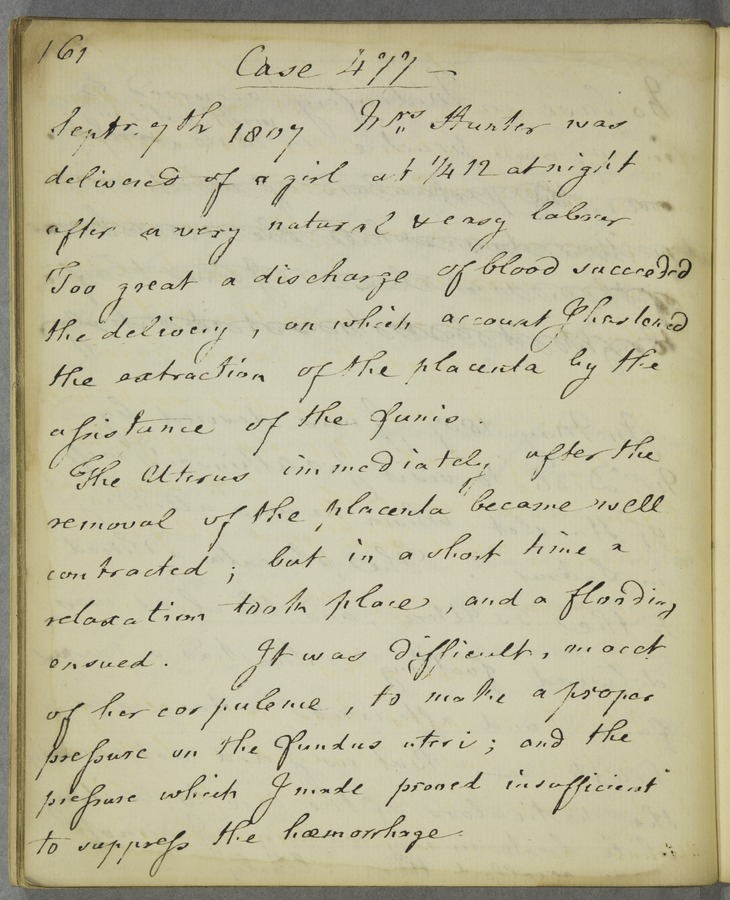 161
Case 477 —
Septr. 7th 1807 Mrs Hunter was
delivered of a girl at 1/4 12 at night
after a very natural & easy labour
Too great a discharge of blood succeeded
the delivery, on which account I hastened
the extraction of the placenta by the
assistance of the funis.
The Uterus immediately after the
removal of the placenta became well
contracted; but in a short time a
relaxation took place, and a flooding
ensued. It was difficult, on acct
of her corpulence, to make a proper
pressure on the fundus uteri; and the
pressure which I made proved insufficient
to suppress the hæmorrhage.